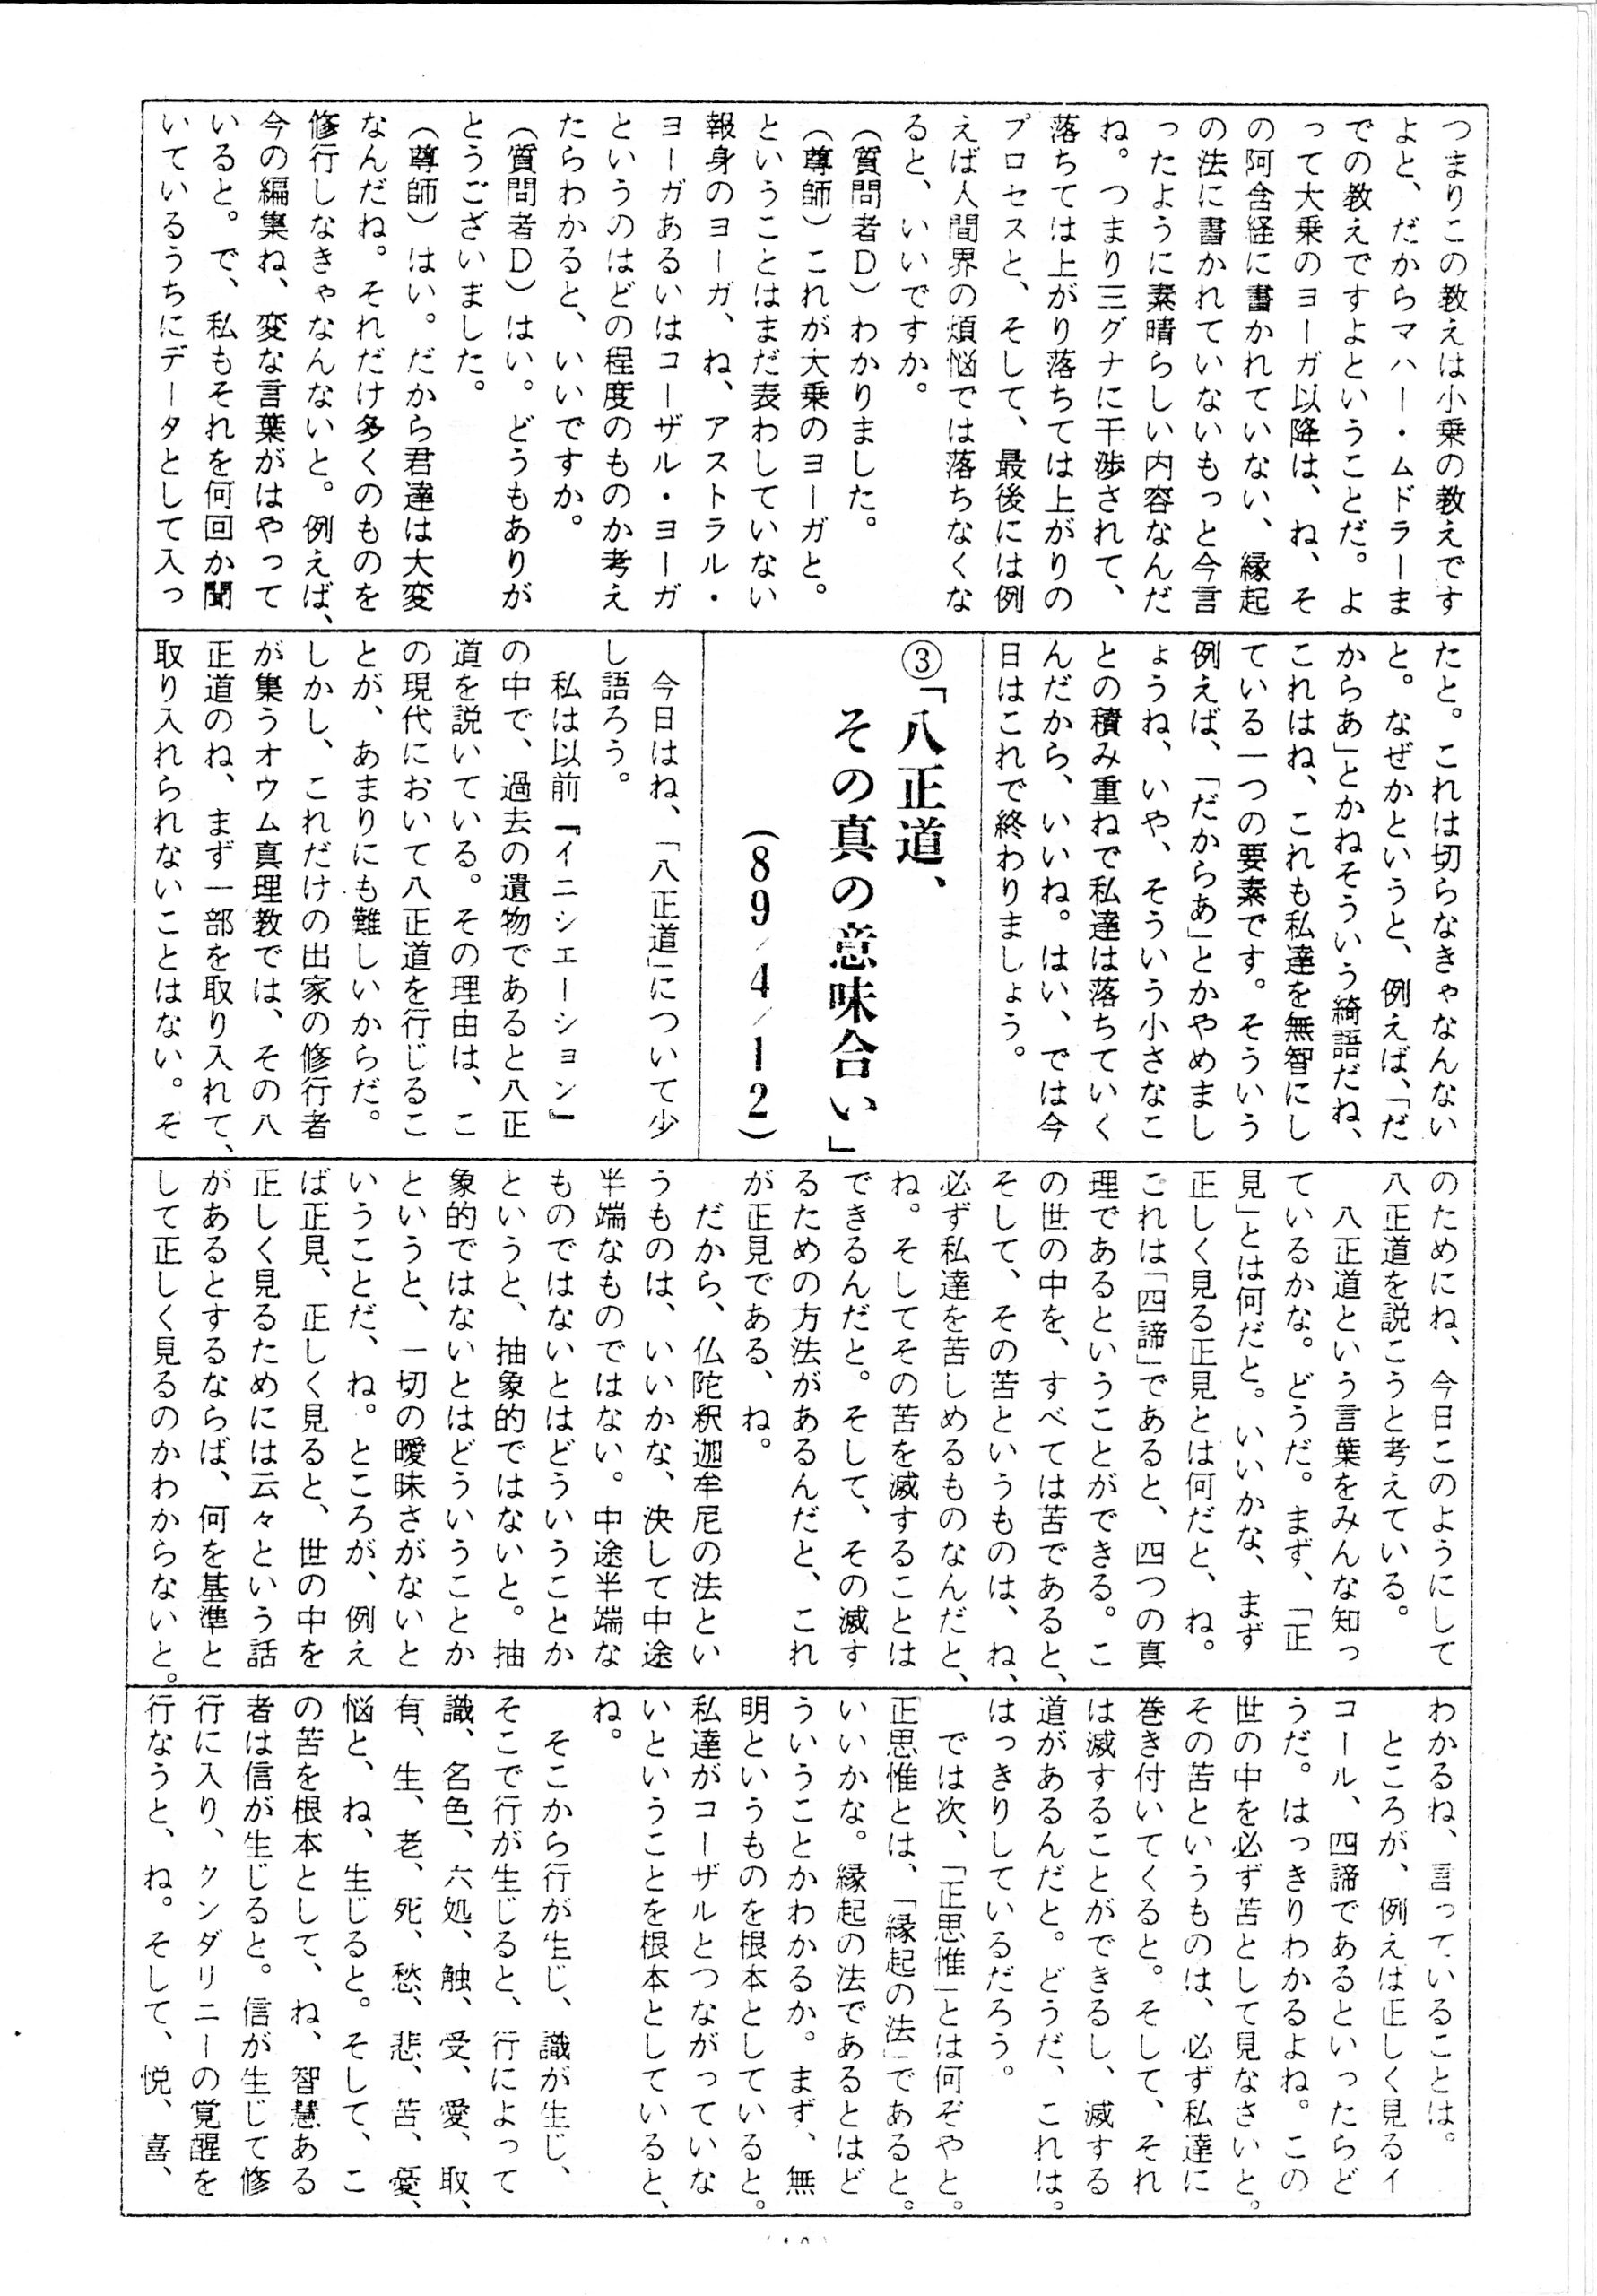 つまりこの教えは小乗の教えです
よと、だからマハー・ムドラーま
での教えですよということだ。よ
って大乗のヨーガ以降は、ね、そ
の阿含経に書かれていない、縁起
の法に書かれていないもっと今言
ったように素晴らしい内容なんだ
ね。つまり三グナに干渉されて、
落ちては上がり落ちては上がりの
プロセスと、そして、最後には例
えば人間界の煩悩では落ちなくな
ると、いいですか。
(質問者D)わかりました。
(尊師)これが大乗のヨーガと。
ということはまだ表わしていない
報身のヨーガ、ね、アストラル・
ヨーガあるいはコーザル・ヨーガ
というのはどの程度のものか考え
たらわかると、いいですか。
(質問者D)はい。どうもありが
とうございました。
(尊師)はい。だから君達は大変
なんだね。それだけ多くのものを
修行しなきゃなんないと。例えば、
今の編集ね、変な言葉がはやって
いると。で、私もそれを何回か聞
いているうちにデータとして入っ
たと。これは切らなきゃなんない
と。なぜかというと、例えば、「だ
からあ」とかねそういう綺語だね、
これはね、これも私達を無智にし
ている一つの要素です。そういう
例えば、「だからあ」とかやめまし
ょうね、いや、そういう小さなこ
との積み重ねで私達は落ちていく
んだから、いいね。はい、では今
日はこれで終わりましょう。
③「八正道、
その真の意味合い」
(89/4/12)
今日はね、「八正道」について少
し語ろう。
私は以前『イニシエーション』
の中で、過去の遺物であると八正
道を説いている。その理由は、こ
の現代において八正道を行じるこ
とが、あまりにも難しいからだ。
しかし、これだけの出家の修行者
が集うオウム真理教では、その八
正道のね、まず一部を取り入れて、
取り入れられないことはない。そ
のためにね、今日このようにして
八正道を説こうと考えている。
八正道という言葉をみんな知っ
ているかな。どうだ。まず、「正
見」とは何だと。いいかな、まず
正しく見る正見とは何だと、ね。
これは「四諦」であると、四つの真
理であるということができる。こ
の世の中を、すべては苦であると、
そして、その苦というものは、ね、
必ず私達を苦しめるものなんだと、
ね。そしてその苦を滅することは
できるんだと。そして、その滅す
るための方法があるんだと、これ
が正見である、ね。
だから、仏陀釈迦牟尼の法とい
うものは、いいかな、決して中途
半端なものではない。中途半端な
ものではないとはどういうことか
というと、抽象的ではないと。抽
象的ではないとはどういうことか
というと、一切の曖昧さがないと
いうことだ、ね。ところが、例え
ば正見、正しく見ると、世の中を
正しく見るためには云々という話
があるとするならば、何を基準と
して正しく見るのかわからないと。
わかるね、言っていることは。
ところが、例えば正しく見るイ
コール、四諦であるといったらど
うだ。はっきりわかるよね。この
世の中を必ず苦として見なさいと。
その苦というものは、必ず私達に
巻き付いてくると。そして、それ
は滅することができるし、滅する
道があるんだと。どうだ、これは。
はっきりしているだろう。
では次、「正思惟」とは何ぞやと。
正思惟とは、「縁起の法」であると。
いいかな。縁起の法であるとはど
ういうことかわかるか。まず、無
明というものを根本としていると。
私達がコーザルとつながっていな
いということを根本としていると、
ね。
そこから行が生じ、識が生じ、
そこで行が生じると、行によって
識、名色、六処、触、受、愛、取、
有、生、老、死、愁、悲、苦、憂、
悩と、ね、生じると。そして、こ
の苦を根本として、ね、智慧ある
者は信が生じると。信が生じて修
行に入り、クンダリニーの覚醒を
行なうと、ね。そして、悦、喜、